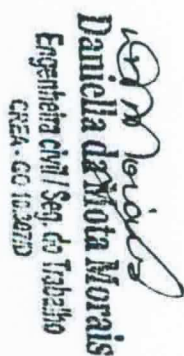 Daniella da Mota Morais
Engenheira civil / Seg. do Trabalho
CREA. GO